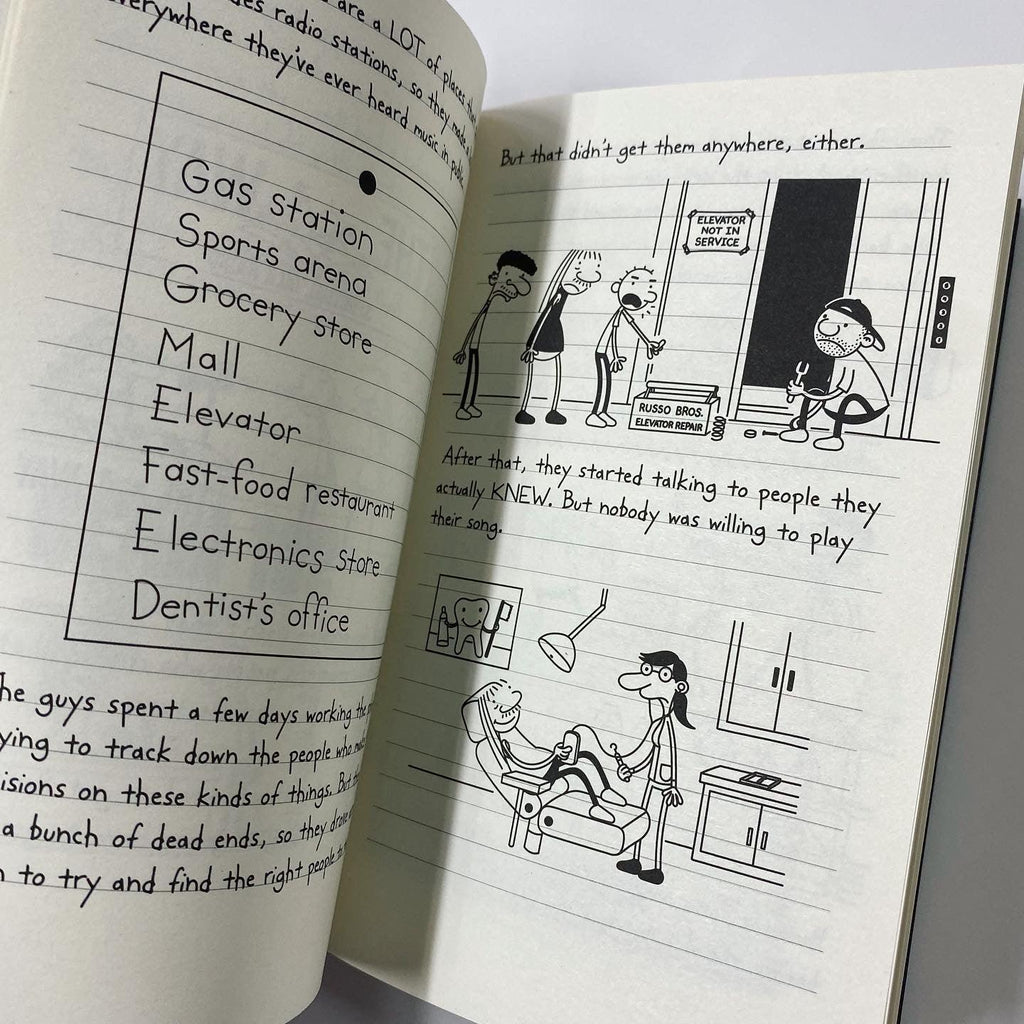 are a LOT of places
radio stations, so they made a
everywhere they've ever heard music in
Gas station
Sports arena
Grocery store
Mall
Elevator
Fast-food restaurant
Electronics store
Dentist's office
guys spent a few days working
to track down the people who
on these kinds of things.
a bunch of dead ends, so they
to try and find the right people
But that didn't get them anywhere, either.
ELEVATOR
NOT IN
SERVICE
RUSSO BROS.
ELEVATOR REPAIR
After that, they started talking to people they
actually KNEW. But nobody was willing to play
their song.